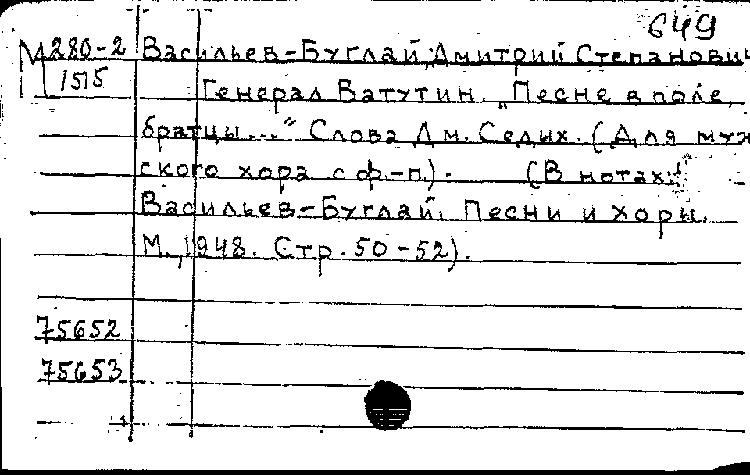 649
М 280-2 Васильев-Буглай, Дмитрий Степанович
1515 Генерал Ватутин. „Песне в поле
братцы..." Слова Дм. Седых. (Для муж
ского хора с ф.-п.). (В нотах:
Васильев-Буглай. Песни и хоры.
М., 1948. Стр. 50-52).
75652
75653